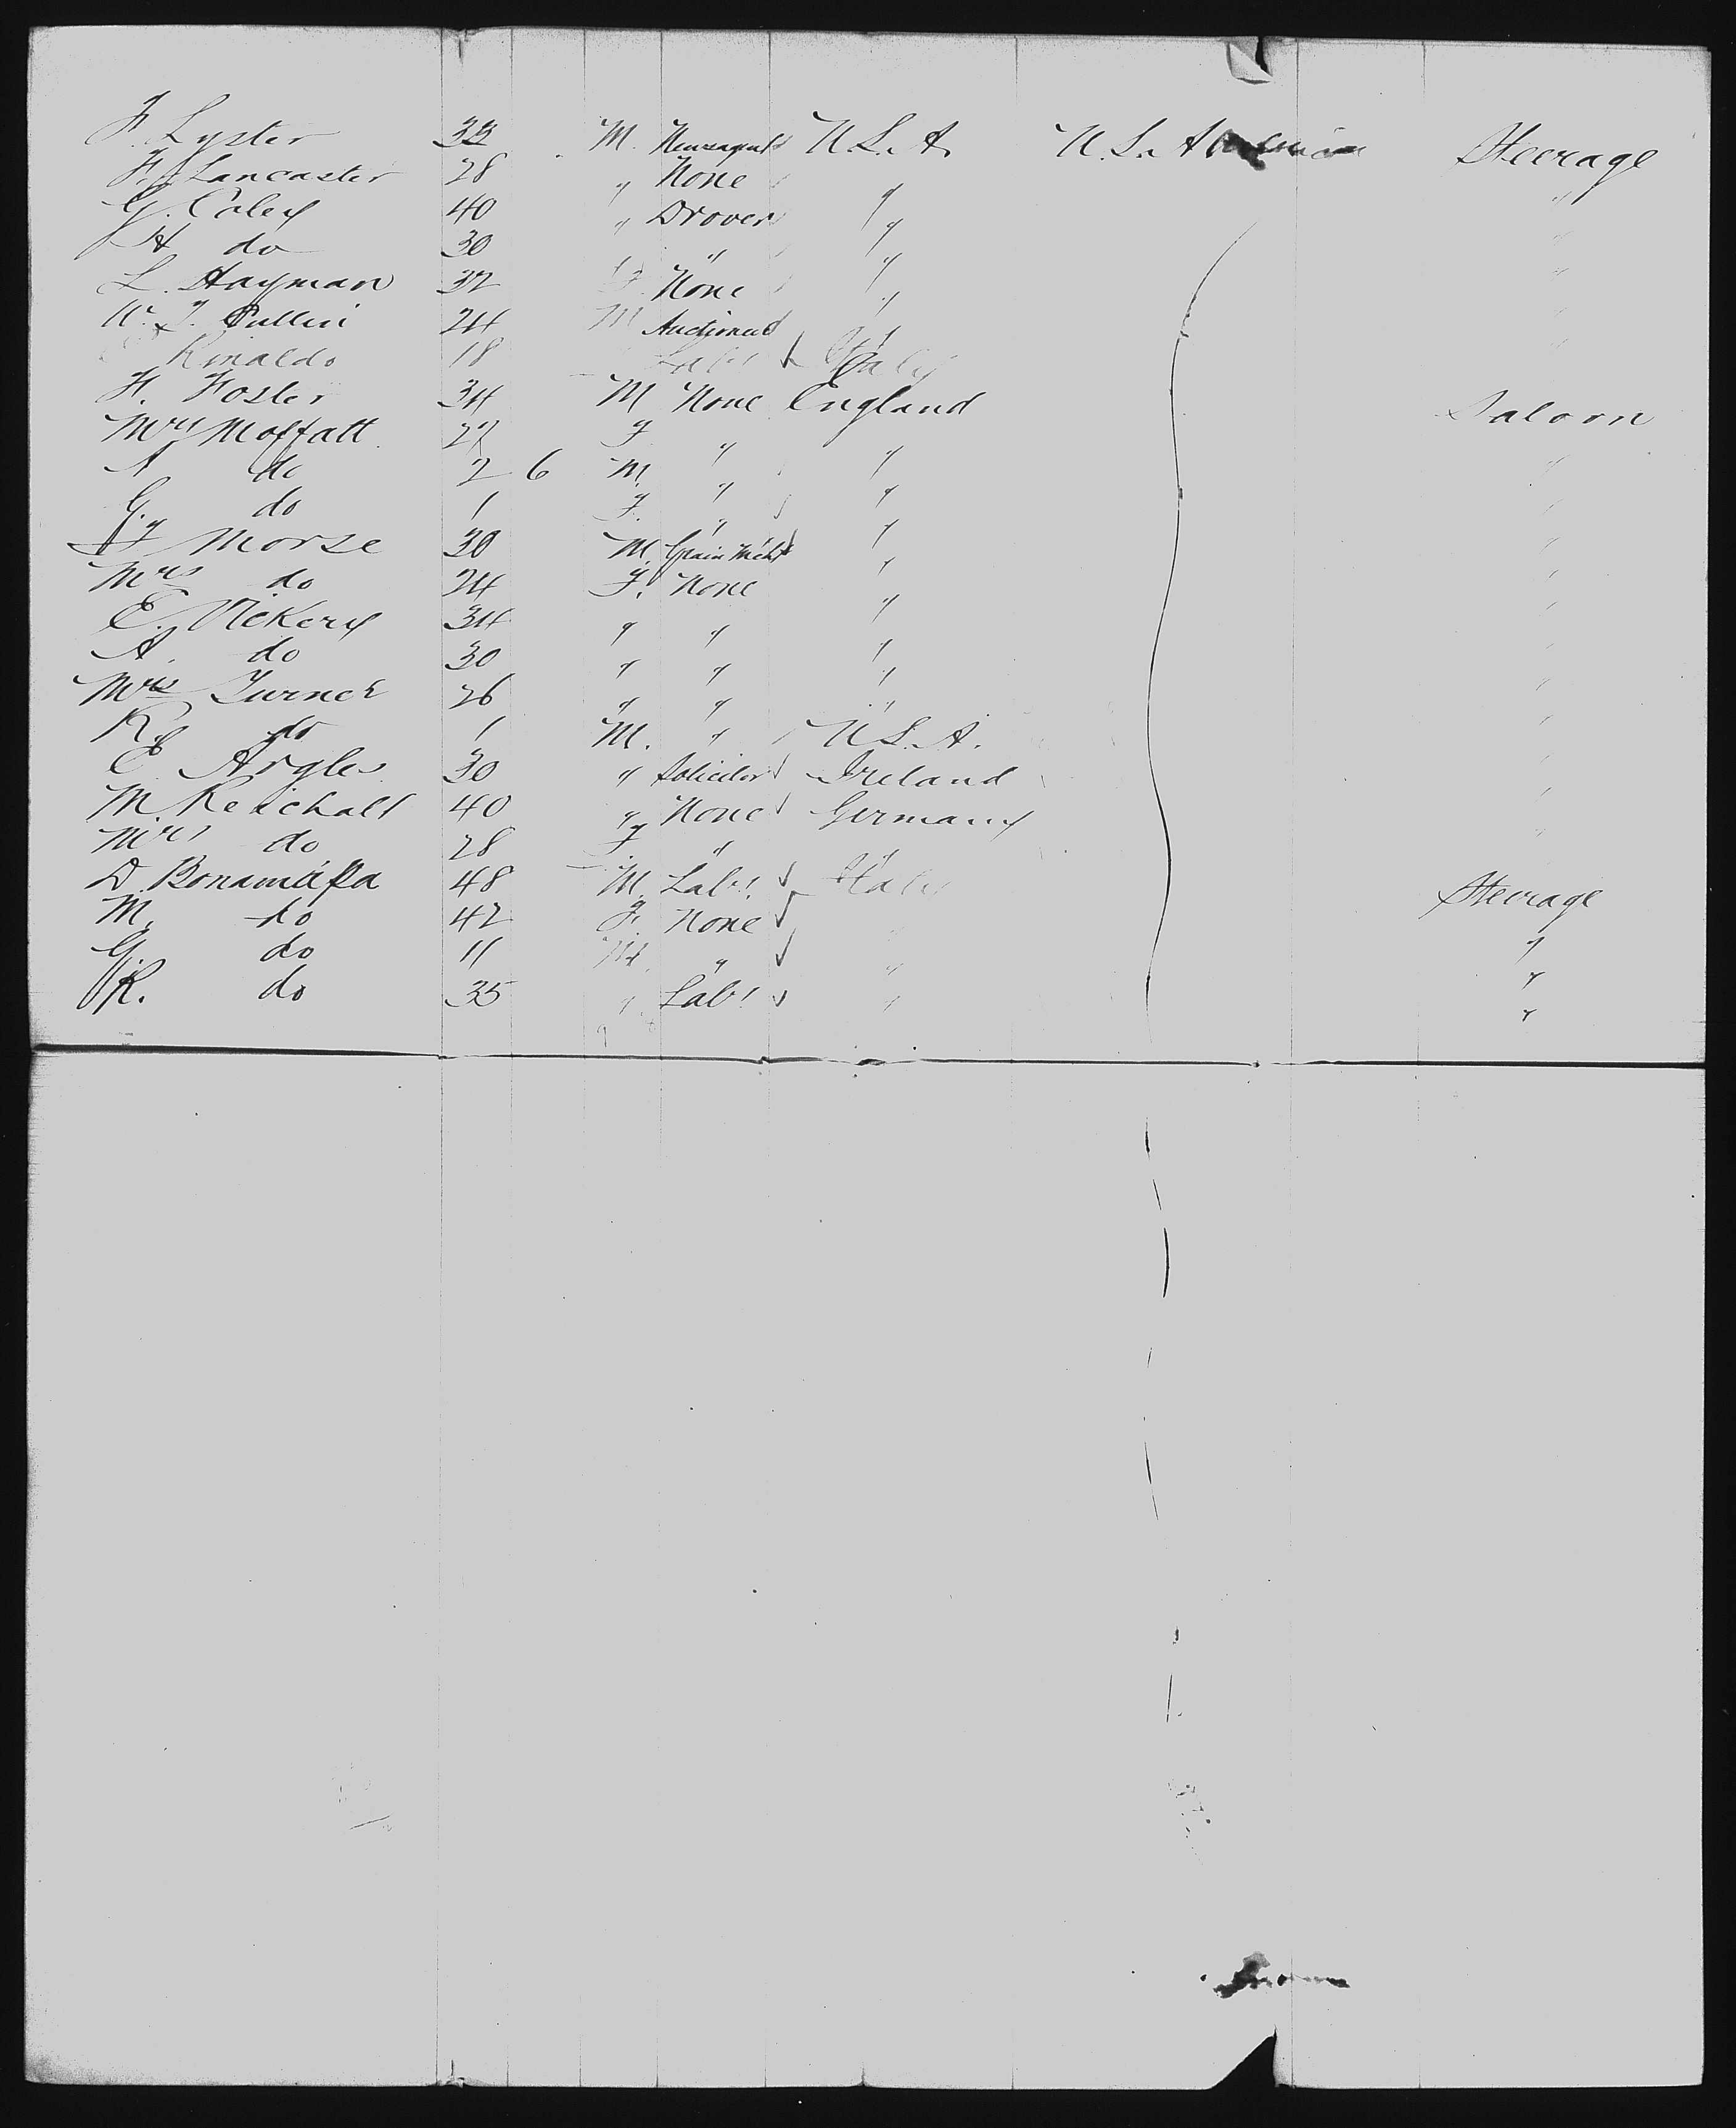 F. Lyster 33 M. Newsagent U.S.A. U.S.A. Steerage
F. Lancaster 28 " None " "
G. Coley 40 " Drover " "
H do 30 " " "
L. Hayman 32 F. None " "
W. J. Pullin 24 M " "
Rinaldo 18 Labr Italy "
H. Foster 34 M None England Saloon
Mrs Moffatt 27 F " " "
A do 2 6 M. " " "
G. do 1 F. " " "
F Morse 30 M. Grain Mcht " "
Mrs do 24 F. None " "
E. Vickery 34 " " " "
A. do 30 " " " "
Mrs Turner 26 " " " "
R. do 1 M. " U.S.A. "
E. Argles 30 " Solicitor Ireland "
M. Reichalt 40 " None Germany "
Mrs do 28 F " " "
D. 48 M. Labr. Italy Steerage
M. do 42 F. None " "
G. do 11 M. " " "
R. do 35 " Labr " "